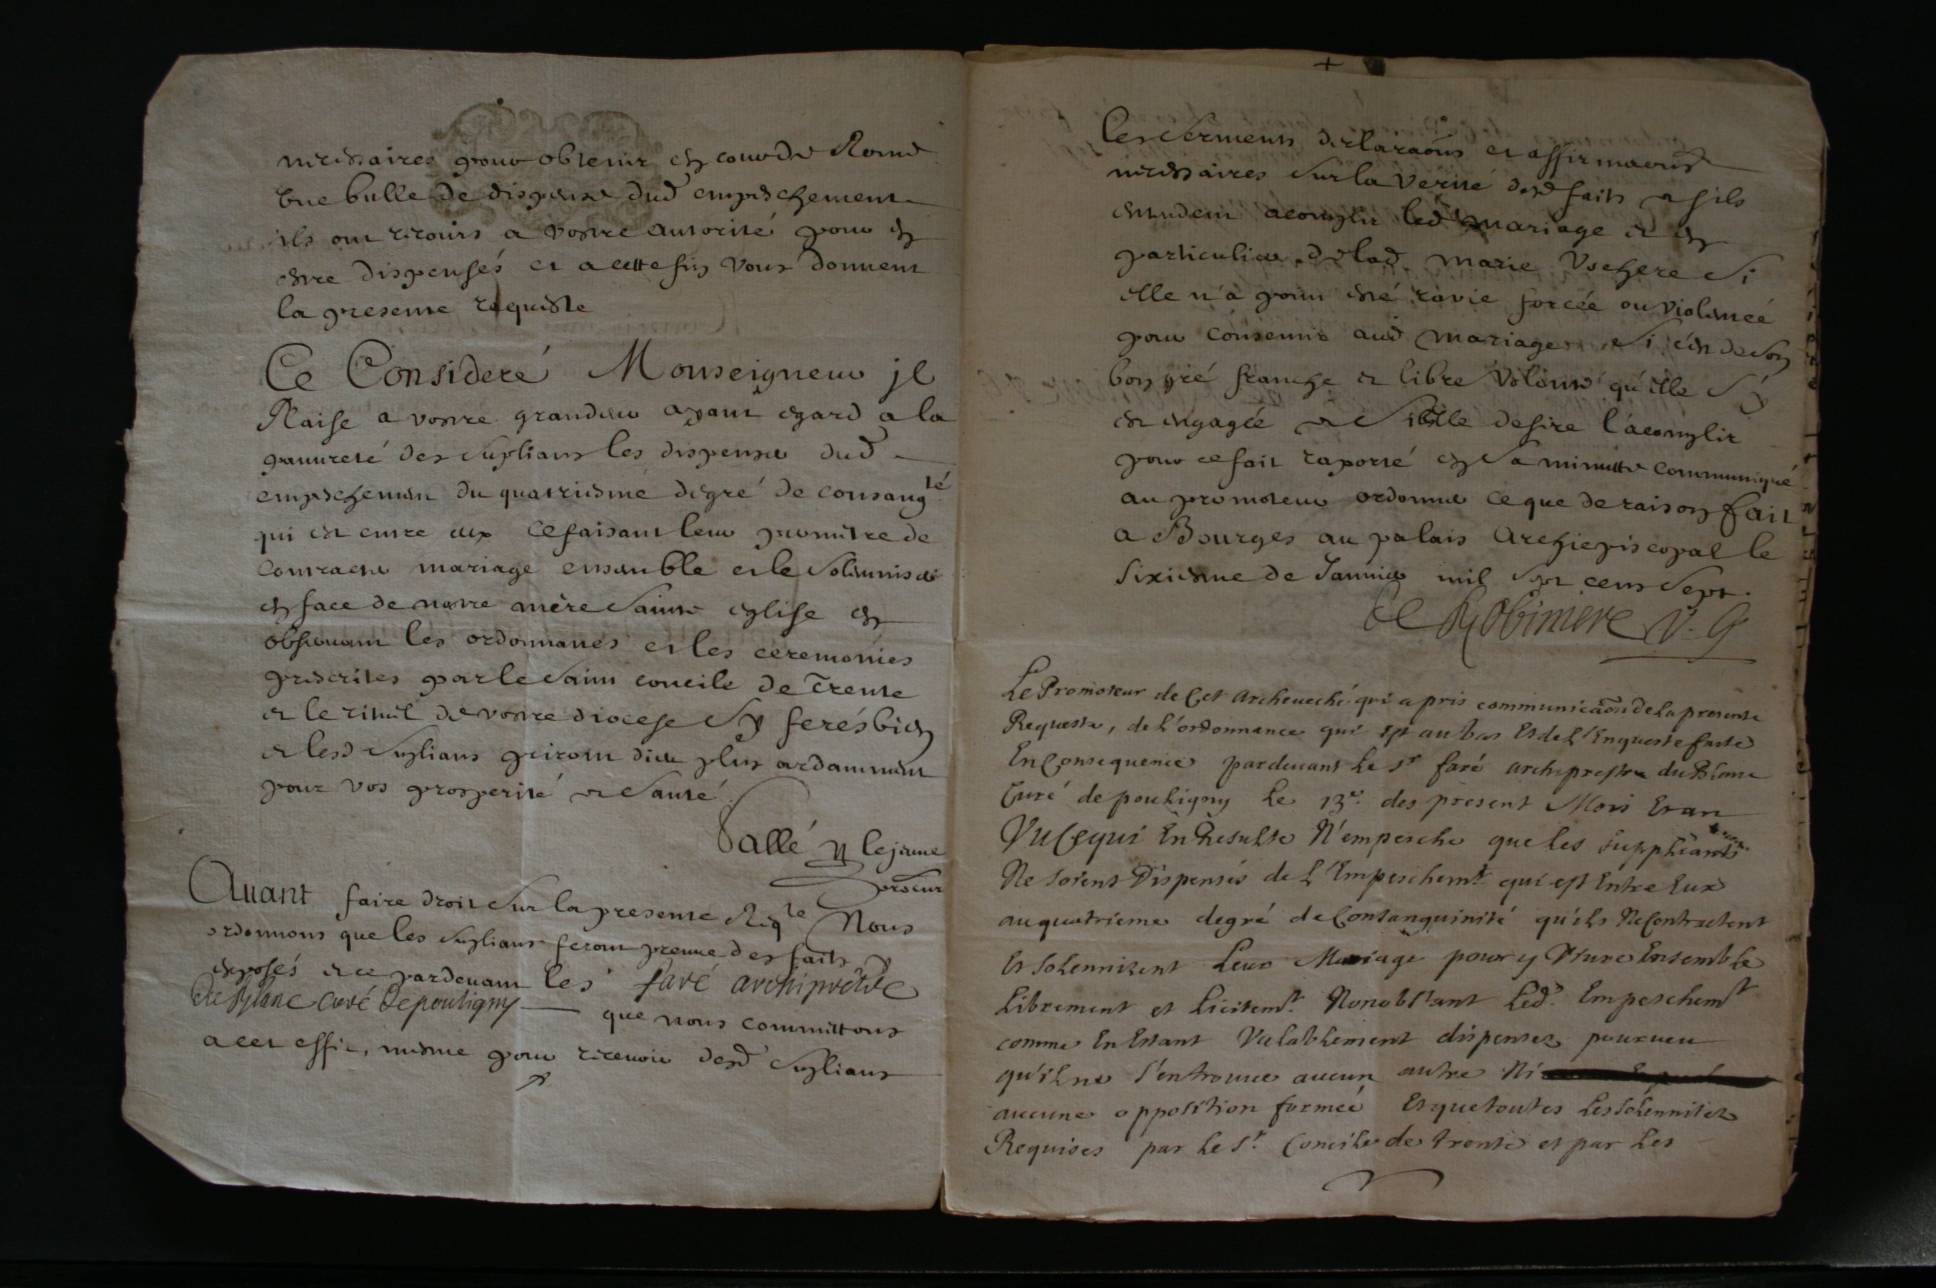 necessaires pour obtenir en cour de Rome
une bulle de dispense dud empeschement
ils ont recours a vostre autorité pour en
estre dispensés et a cette fin vous donnent
la presente requeste
Ce Consideré Monseigneur il
Plaise a vostre grandeur ayant egard a la
pauureté des suplians les dispenser dud
empeschement du quatriesme degré de consang.té
qui est entre eux ce faisant leur permettre de
contracter mariage ensemble et le solemniser
en face de nostre mère sainte eglise en
obseruant les ordonnances et les ceremonies
prescrites par le saint concile de Trente
et le rituel de vostre diocese sy ferés bien
et lesd suplians priront dieu plus ardamment
pour vos prosperité et santé.
Vallé le jeune
procur
Auant faire droit sur la presente Reqte Nous
ordonnons que les suplians feront preuue des faits y
exposés et ce pardeuant le s.r faré archiprètre
du blanc curé de pouligny que nous committons
a cet effet, mesme pour receuoir desd suplians
les serments declaraõns et affirmaõns
necessaires sur la verité desd faits et s'ils
entendent acomplir led mariage et en
particulier de lad. marie Vschere si
elle n'a point esté ravie forcée ou violencée
pour consentir aud mariage si c'est de son
bon gré franche et libre volonté qu'elle s'y
est engagée et si elle desire l'acomplir
pour ce fait raporté en sa minutte communiqué
au promoteur ordonner ce que de raison fait
a Bourges au palais archiepiscopal le
sixiesme de Januier mil sept cens sept.
De Robiniere V. G
Le Promoteur de Cet archeueché qui a pris communicaõn de la presente
Requeste, de l'ordonnance qui est au bas Et de L'Enqueste faite
En Consequence pardeuant Le Sr faré archiprestre du Blanc
Curé de pouligny Le 13e. des present Mois Et an
Vu Ce qui En Resulte N'empesche que les suppliants
Ne soient Dispensés de L'Empeschemt. qui est Entre Eux
au quatrieme degré de Consanguinité qu'ils Ne Contractent
Et solennisent Leur Mariage pour y Viure Ensemble
Librement et Licitemt. Nonobstant Led. Empeschemt
comme En Estant Valablement dispensez pourueu
qu'il ne s'en trouue aucun autre Ni
aucune opposition formeé Et que toutes Les solennitez
Requises par le St. Concile de trente et par Les